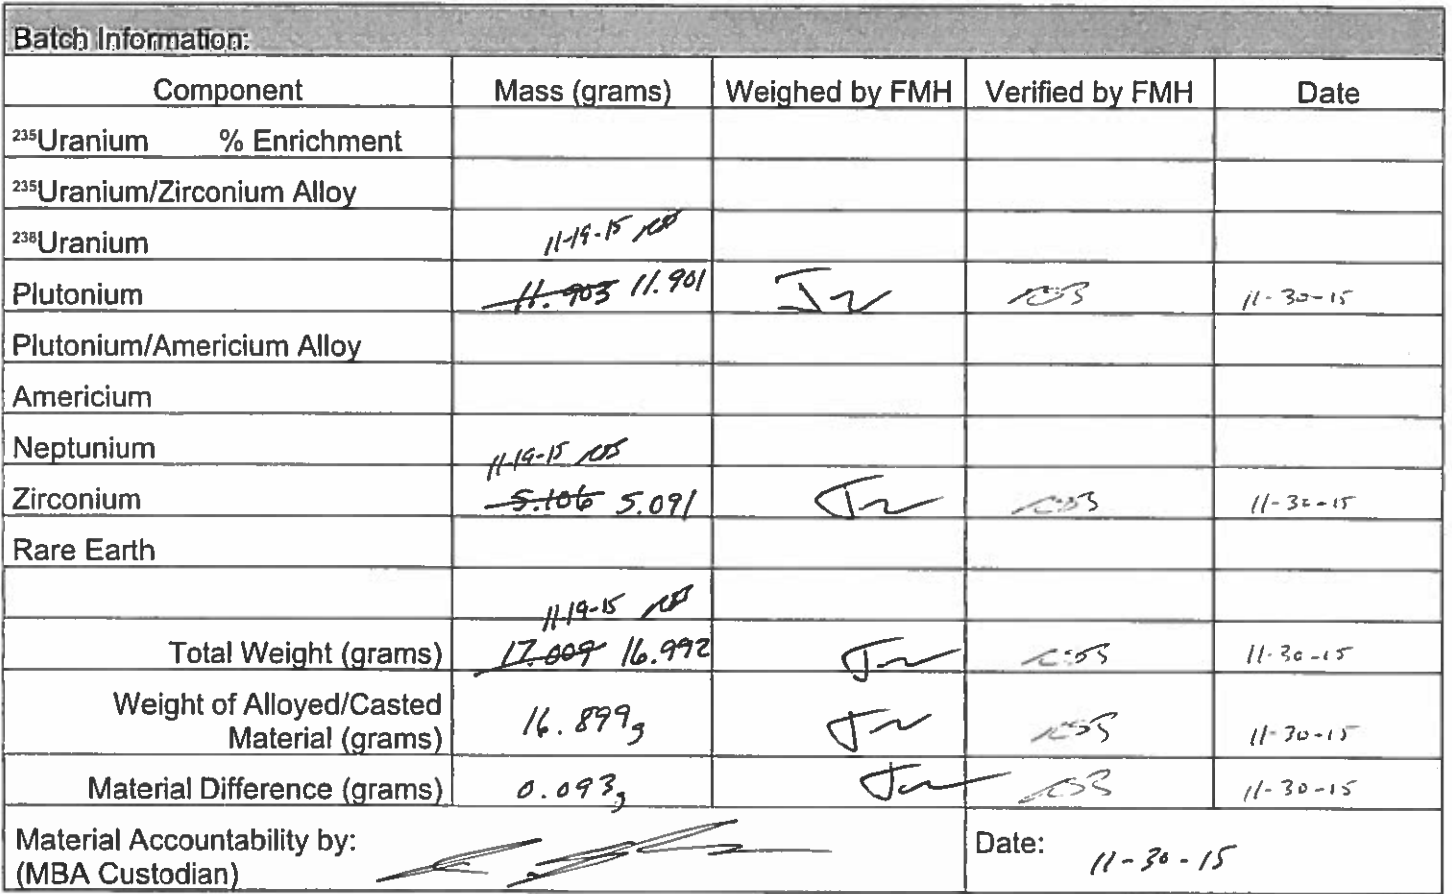 Batch Information:
Component Mass (grams) Weighed by FMH Verified by FMH Date
235Uranium % Enrichment
235Uranium/Zirconium Alloy
11-19-15
238Uranium
Plutonium 11.903 11.901 11-30-15
Plutonium/Americium Alloy
Americium
Neptunium
11-19-15
Zirconium 5.106 5.091 11-30-15
Rare Earth
11-19-15
Total Weight (grams) 17.009 16.992 11-30-15
Weight of Alloyed/Casted
Material (grams) 16.899g 11-30-15
Material Difference (grams) 0.093g 11-30-15
Material Accountability by: Date: 11-30-15
(MBA Custodian)